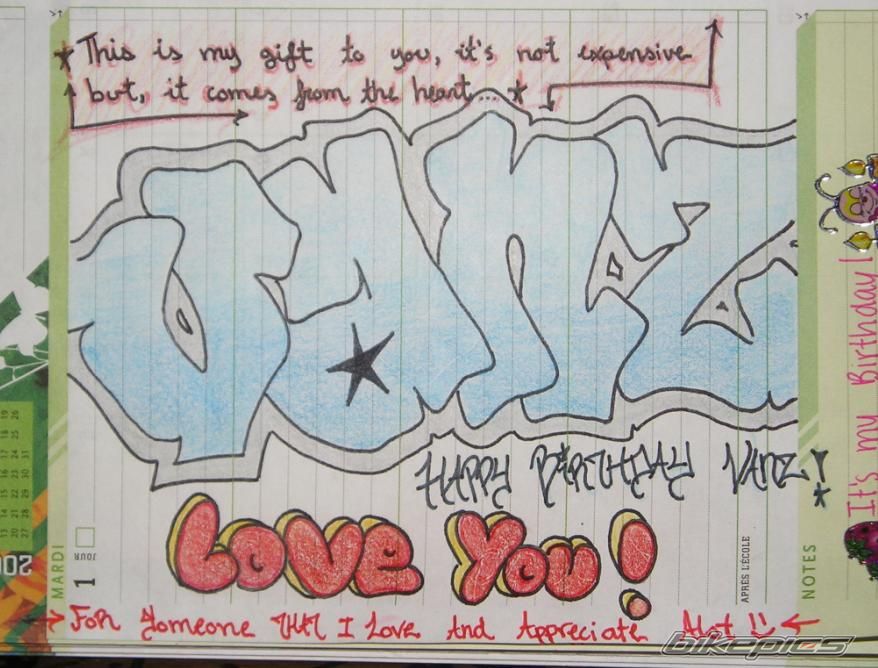 This is my gift to you, it's not expensive
but, it comes from the heart...
VANZ
HAPPY BIRTHDAY VANZ!
LOVE YOU!
FOR someone THAT I Love And Appreciate Alot
MARDI
1
JOUR
APRÈS L'ÉCOLE
NOTES
It's my Birthday!
bikepics